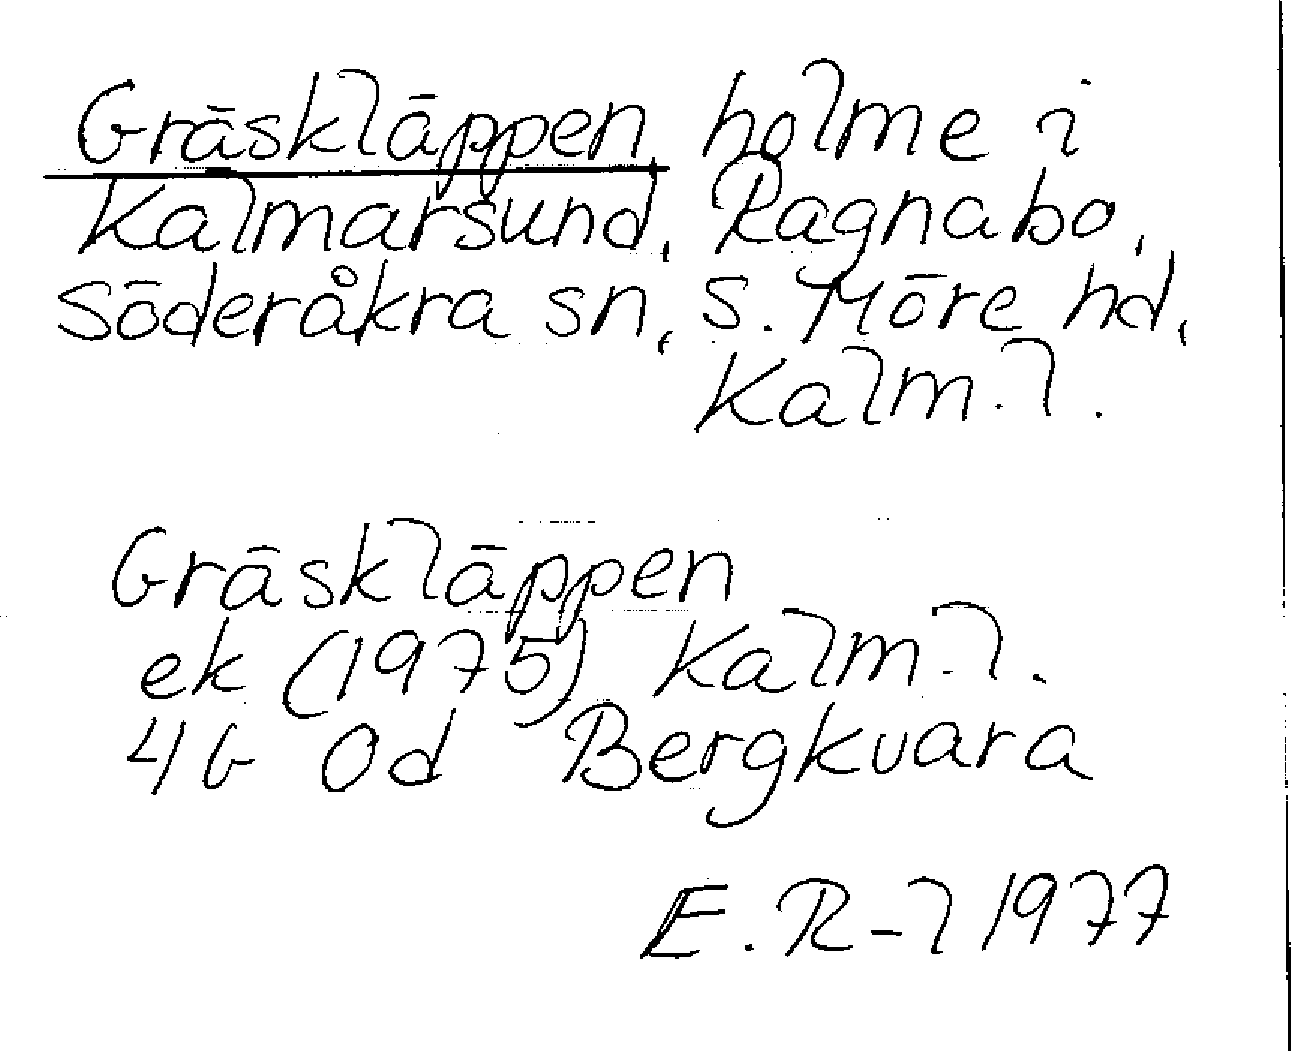 Gräskläppen, holme i
Kalmarsund, Ragnabo,
Söderåkra sn, S. Möre hd,
Kalm. l.
Gräskläppen
ek (1975) Kalm. l.
4G 0d Bergkvara
E. R-l 1977